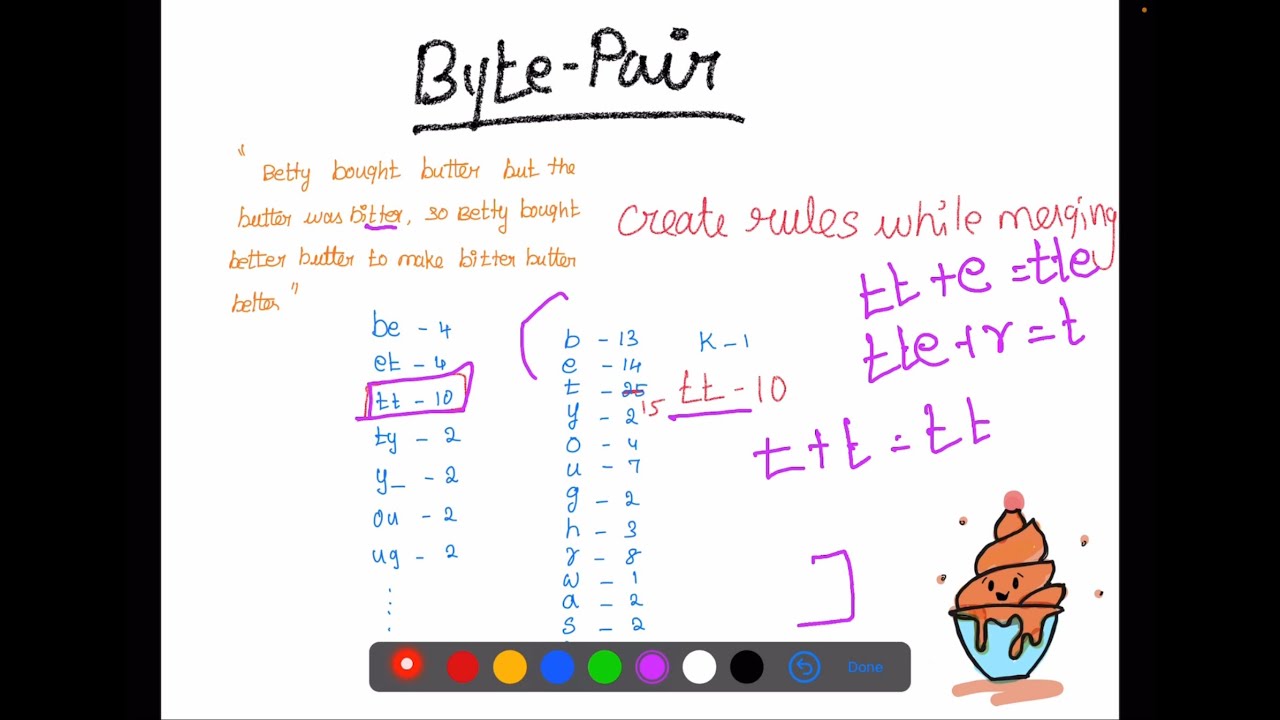 Byte-Pair
"Betty bought butter but the
butter was bitter, so Betty bought
better butter to make bitter butter
better"
create rules while merging
tt + e = tte
tte + r = t
t + t = tt
be - 4
et - 4
tt - 10
ty - 2
y_ - 2
ou - 2
ug - 2
b - 13
e - 14
t - 25 15
y - 2
o - 4
u - 7
g - 2
h - 3
r - 8
w - 1
a - 2
s - 2
k - 1
tt - 10
Done